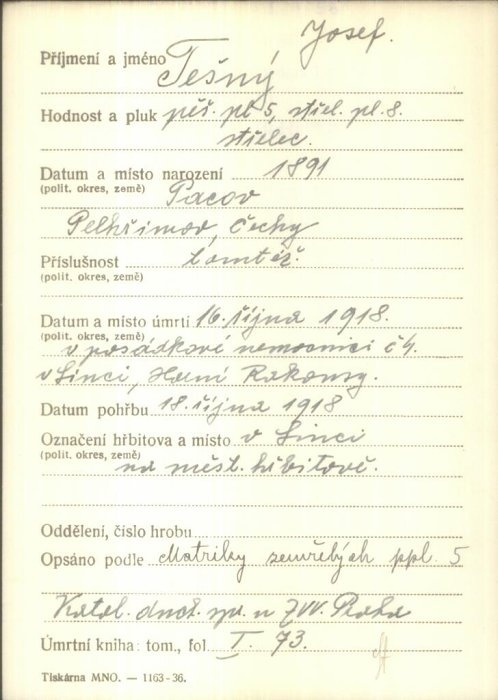 Josef.
Příjmení a jméno Tešný
Hodnost a pluk pěš. pl. 5, střel. pl. 8.
střelec.
Datum a místo narození 1891
(polit. okres, země) Pacov
Pelhřimov, Čechy
Příslušnost tamtéž.
(polit. okres, země)
Datum a místo úmrtí 16. října 1918.
(polit. okres, země)
v posádkové nemocnici č 4.
v Linci, Horní Rakousy.
Datum pohřbu 18. října 1918
Označení hřbitova a místo v Linci
(polit. okres, země)
na měst. hřbitově.
Oddělení, číslo hrobu
Opsáno podle Matriky zemřelých ppl. 5
Katol. duch. spr. u ZVV. Praha
Úmrtní kniha: tom., fol. I. 73.
Tiskárna MNO. — 1163-36.